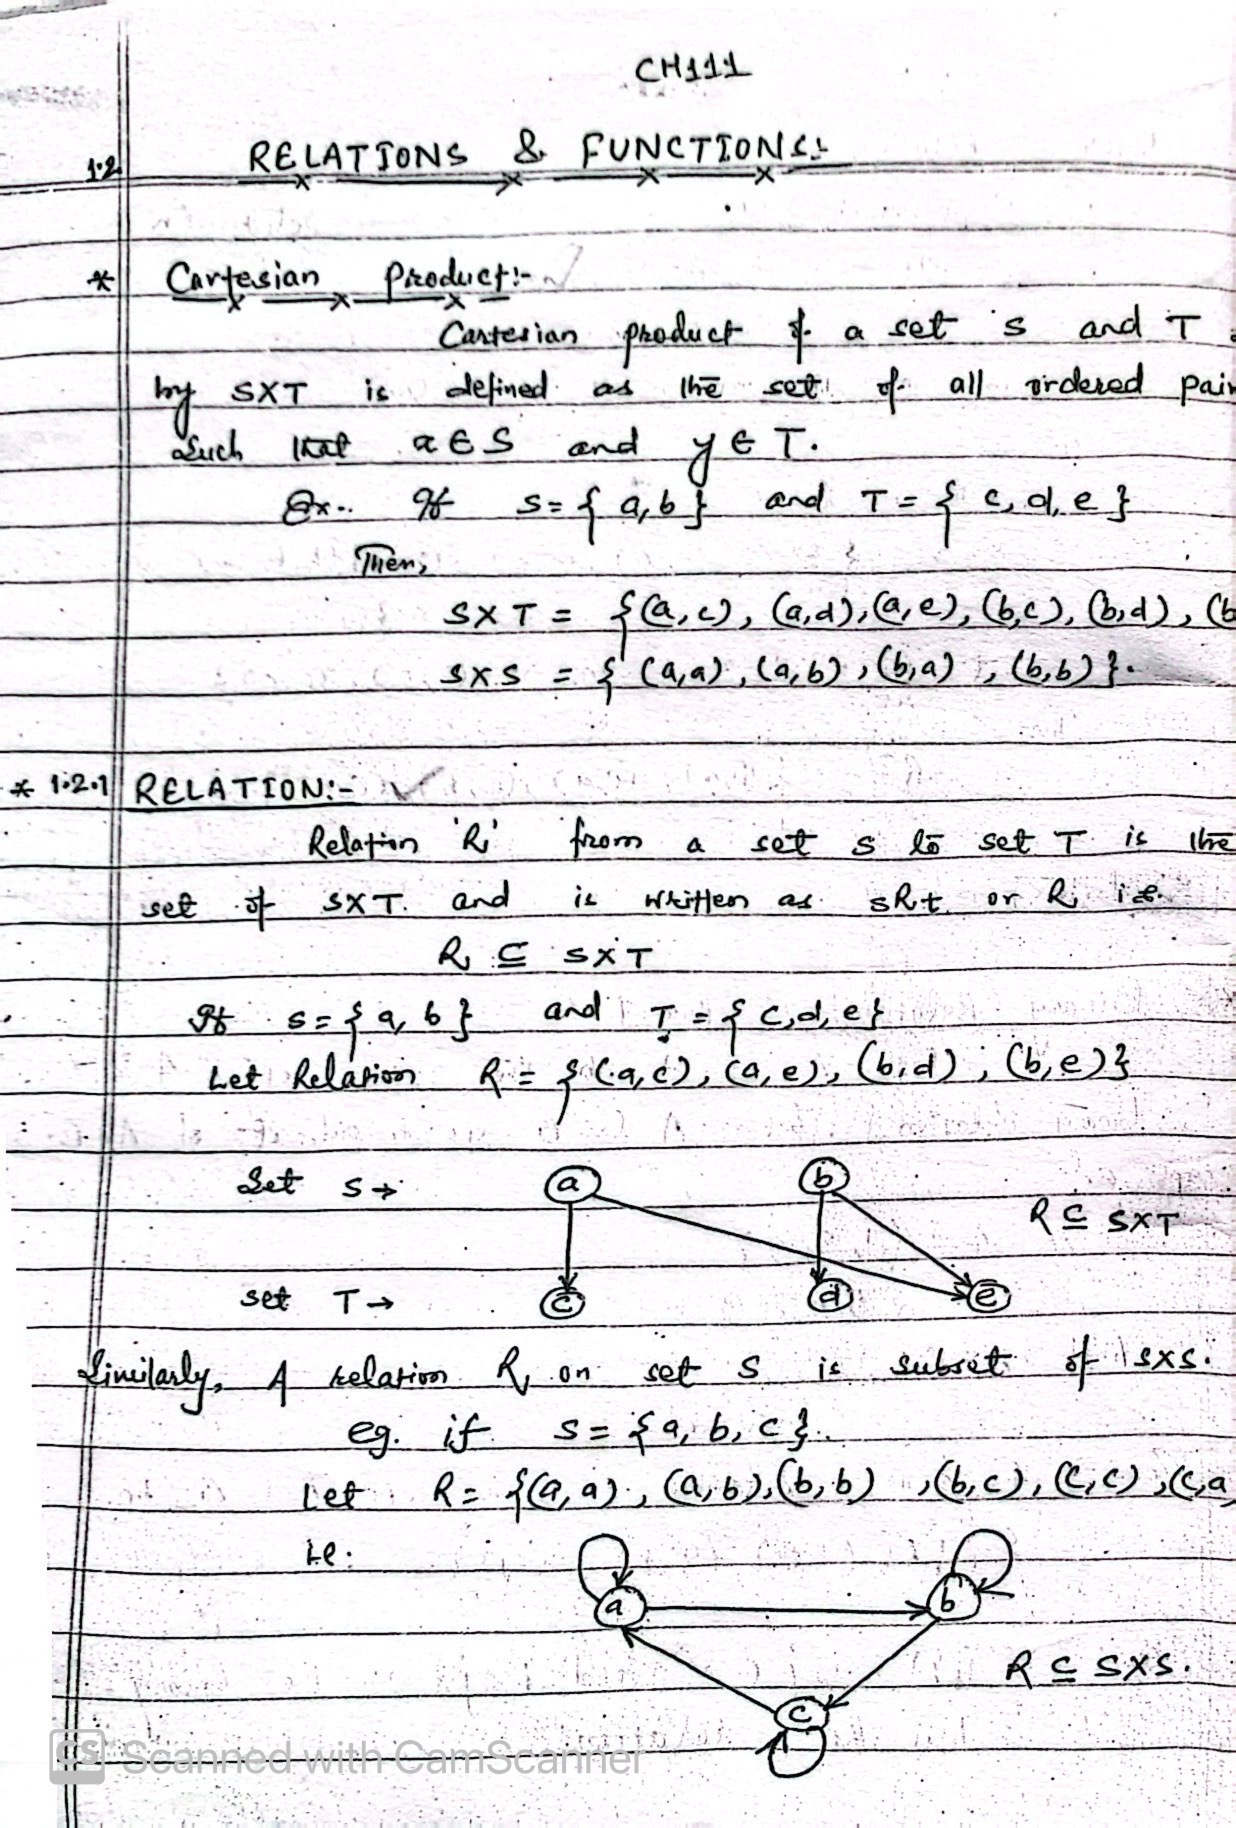 CH111
1.2 RELATIONS & FUNCTIONS:-
* Cartesian Product:-
Cartesian product of a set S and T
by SXT is defined as the set of all ordered pair
Such that x ∈ S and y ∈ T.
Ex.. If S = { a, b } and T = { c, d, e }
Then,
S X T = {(a, c), (a,d), (a, e), (b,c), (b,d), (b
S X S = { (a,a), (a, b), (b,a), (b,b) }.
* 1.2.1 RELATION:-
Relation 'R' from a set S to set T is the
set of SXT. and is written as sRt or R i.e.
R ⊆ S X T
If S = { a, b } and T = { c,d, e }
Let Relation R = { (a, c), (a, e), (b,d), (b, e)}
Set S → a b
R ⊆ SXT
set T → c d e
Similarly, A relation R on set S is subset of SXS.
eg. if S = { a, b, c }.
Let R = {(a, a), (a, b), (b, b), (b, c), (c, c), (c, a
i.e.
a b
R ⊆ SXS.
c
CS Scanned with CamScanner